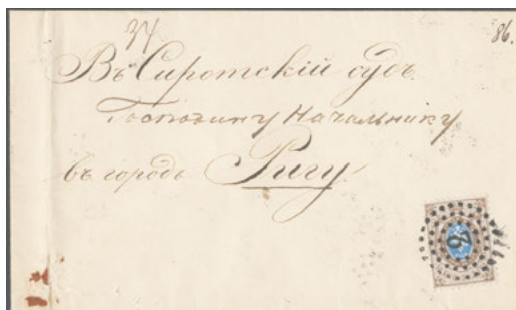 34
86.
Въ Сиротскій судъ.
Господину Начальнику
въ городъ Ригу.